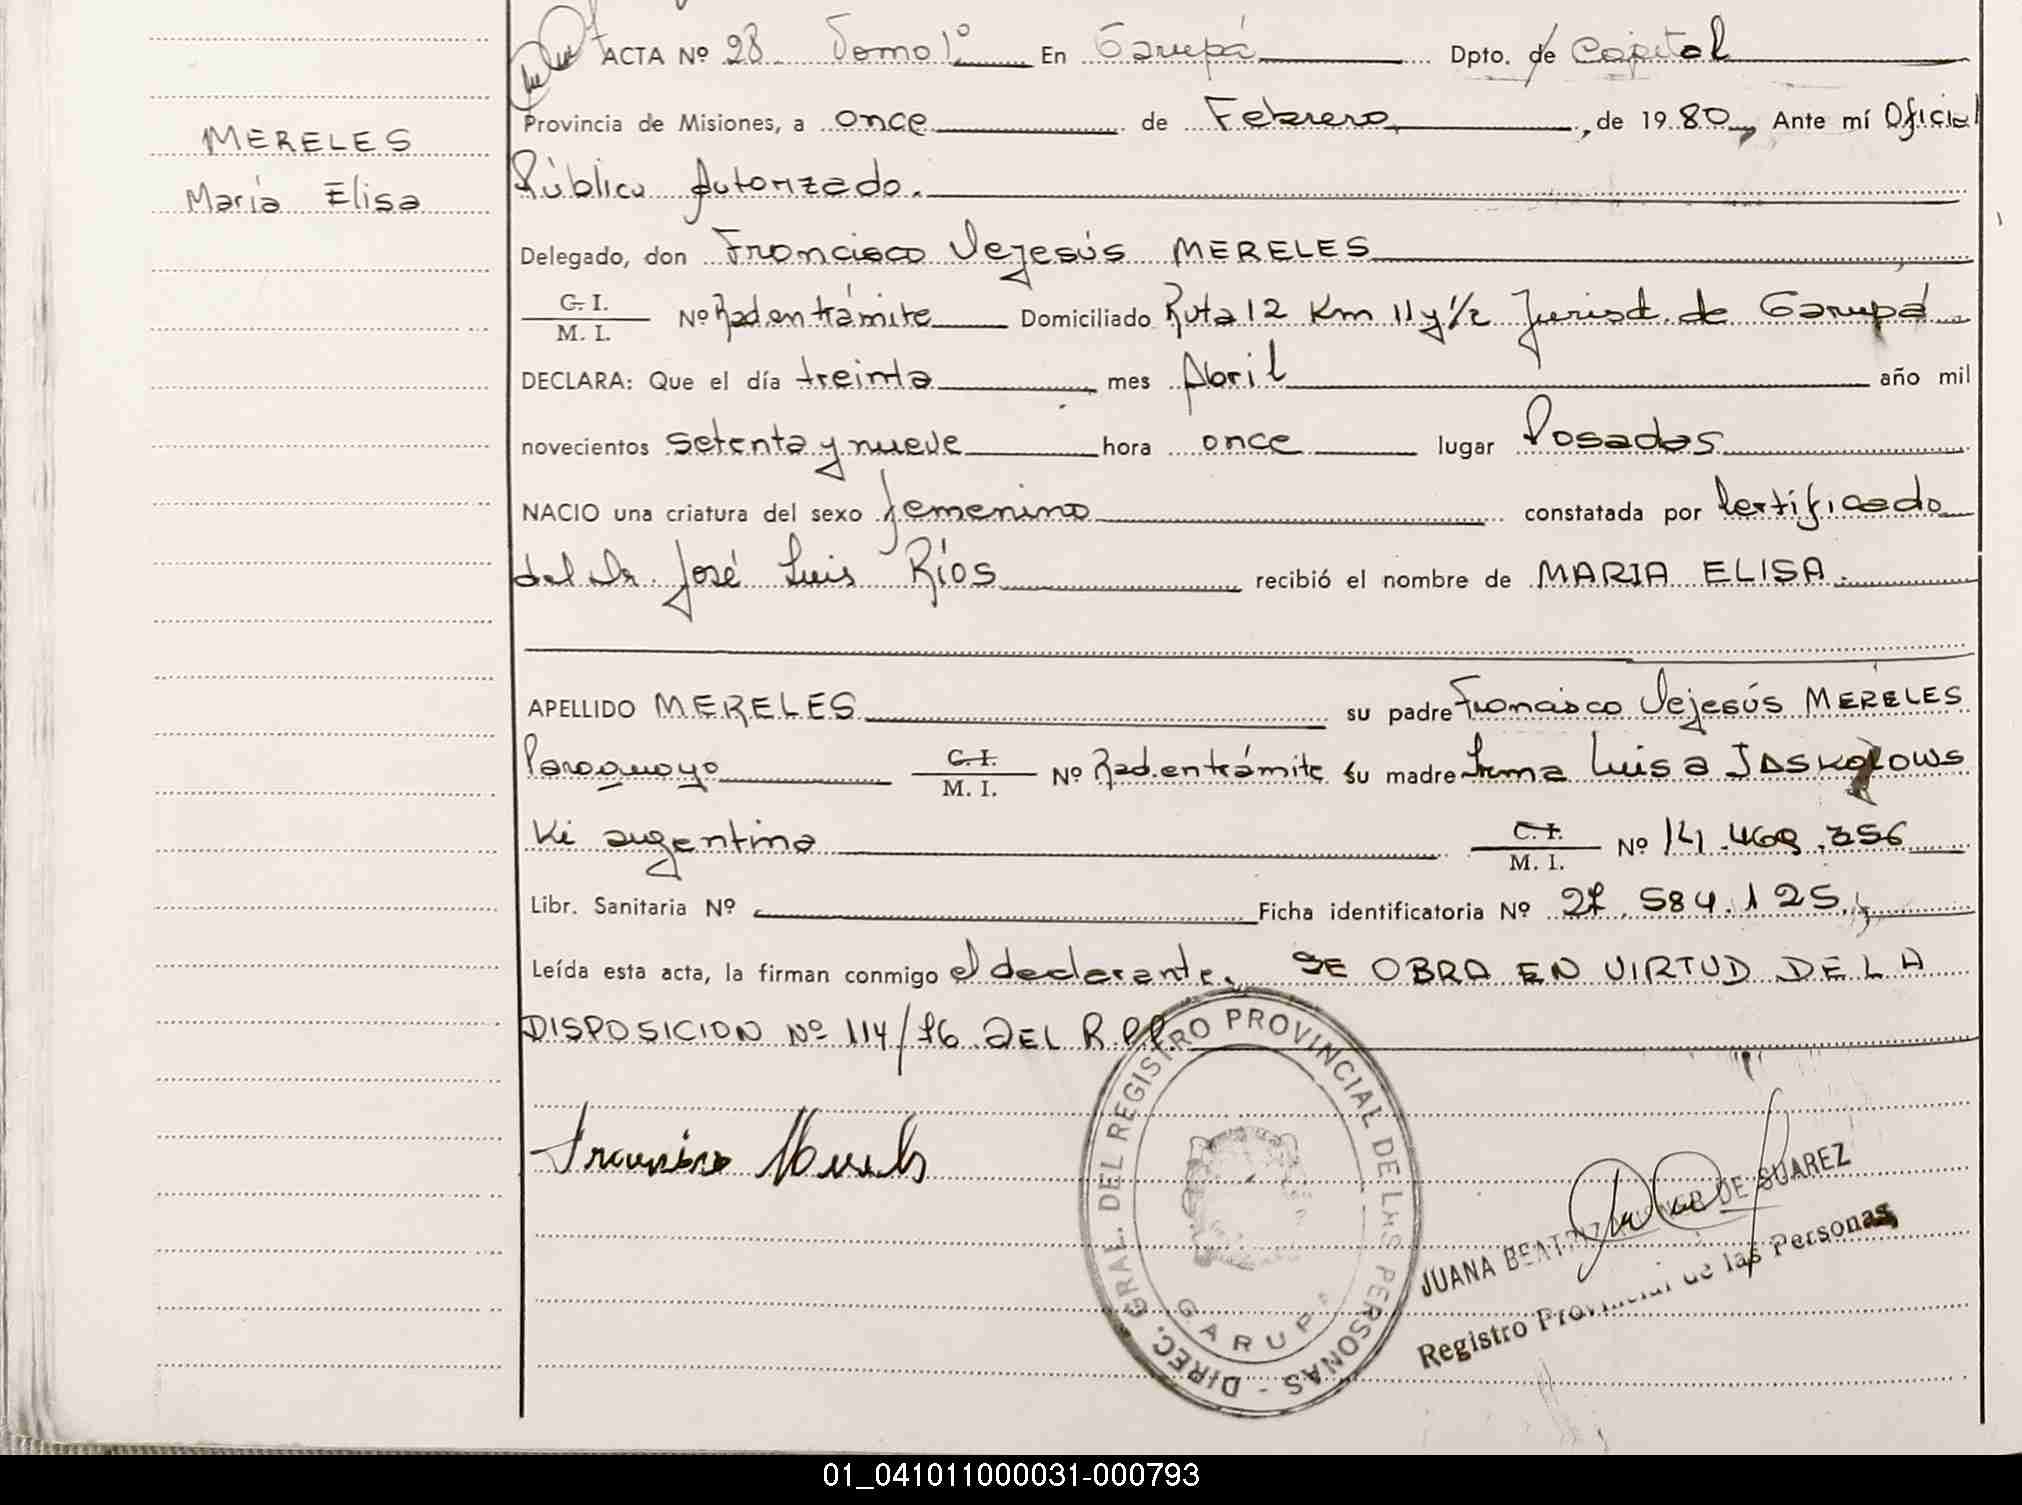 ACTA Nº 28 Tomo 1º En Garupá Dpto. de Capital
Provincia de Misiones, a once de Febrero, de 1980, Ante mí Oficial
MERELES
María Elisa
Público Autorizado.
Delegado, don Francisco Dejesús MERELES
C. I.
M. I.
Nº Rad. en trámite Domiciliado Ruta 12 Km 11 y 1/2 Jurisd. de Garupá
DECLARA: Que el día treinta mes Abril año mil
novecientos setenta y nueve hora once lugar Posadas
NACIO una criatura del sexo femenino constatada por Certificado
del Dr. José Luis Ríos recibió el nombre de MARIA ELISA.
APELLIDO MERELES su padre Francisco Dejesús MERELES
Paraguayo C. I. M. I. Nº Rad. en trámite su madre Irma Luisa JASKOLOWS
Ki argentina C. I. M. I. Nº 14.469.256
Libr. Sanitaria Nº Ficha identificatoria Nº 27.584.125.
Leída esta acta, la firman conmigo el declarante. SE OBRA EN VIRTUD DE LA
DISPOSICION Nº 114/76 DEL R.P.P.
Francisco Mereles
DIREC. GRAL. DEL REGISTRO PROVINCIAL DE LAS PERSONAS -
GARUP
JUANA BEATRIZ DE SUAREZ
Registro Provincial de las Personas
01_041011000031-000793